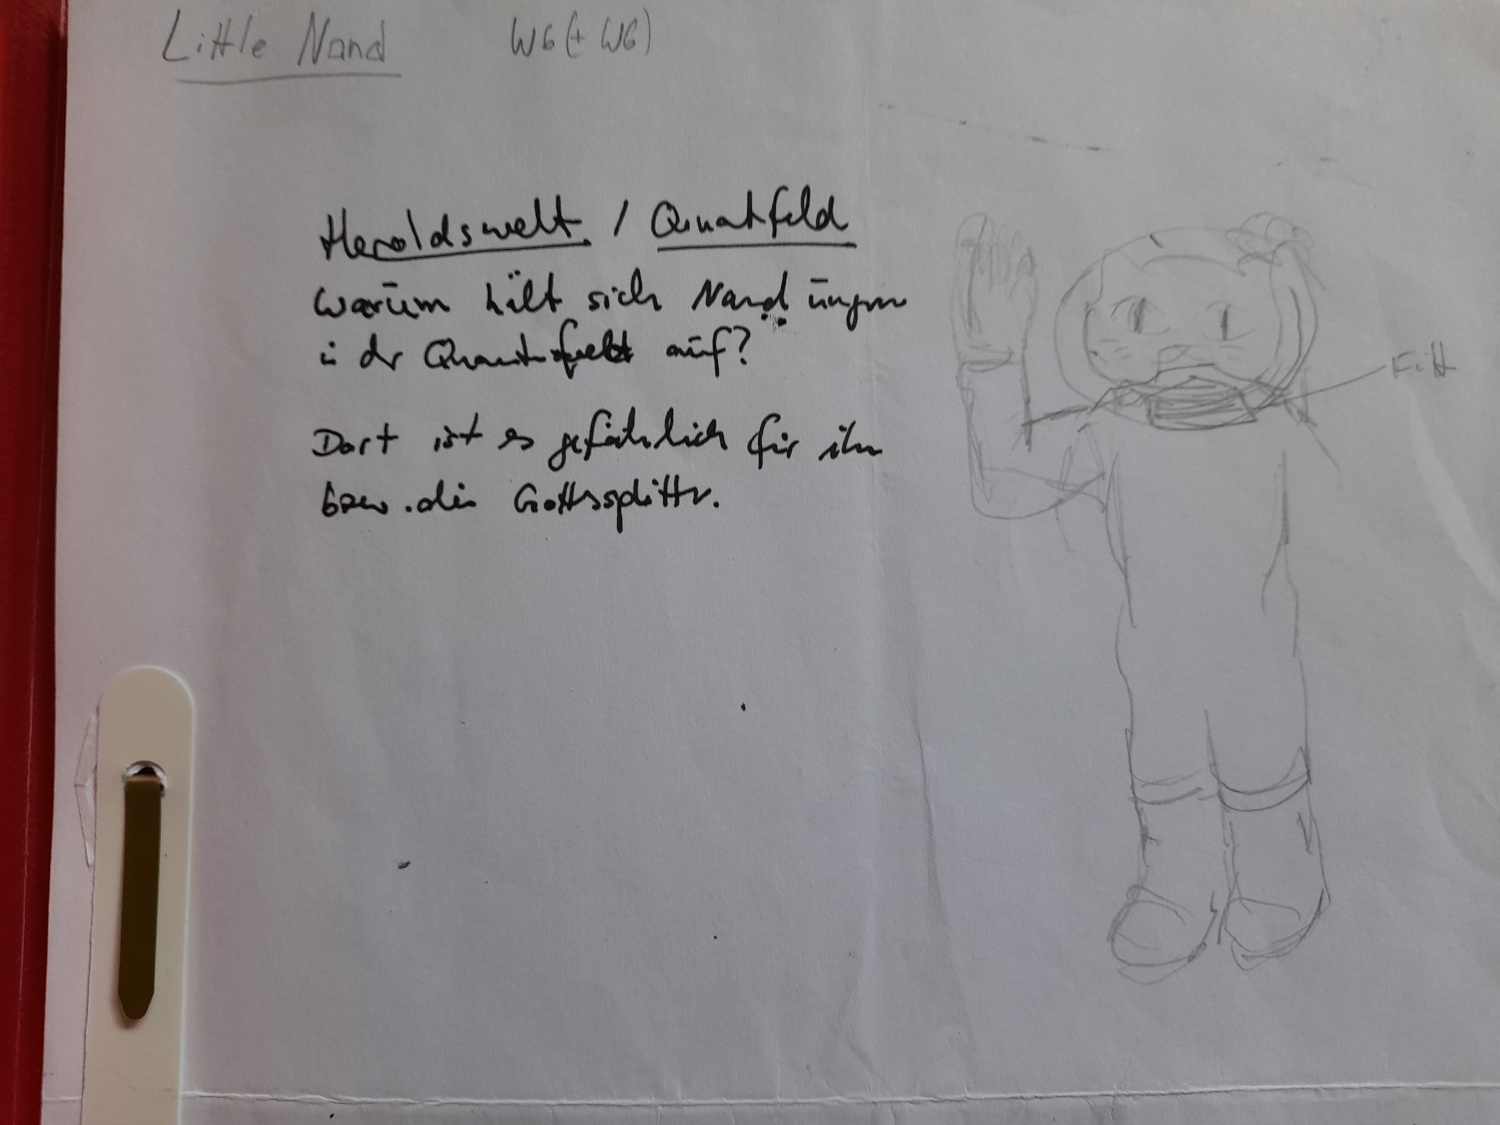 Little Nand W6 (+ W6)
Heroldswelt / Quantfeld
Warum hält sich Nand ungern
in der auf?
Fitt
Dort ist es gefährlich für ihn
bzw. die Gottssplitter.